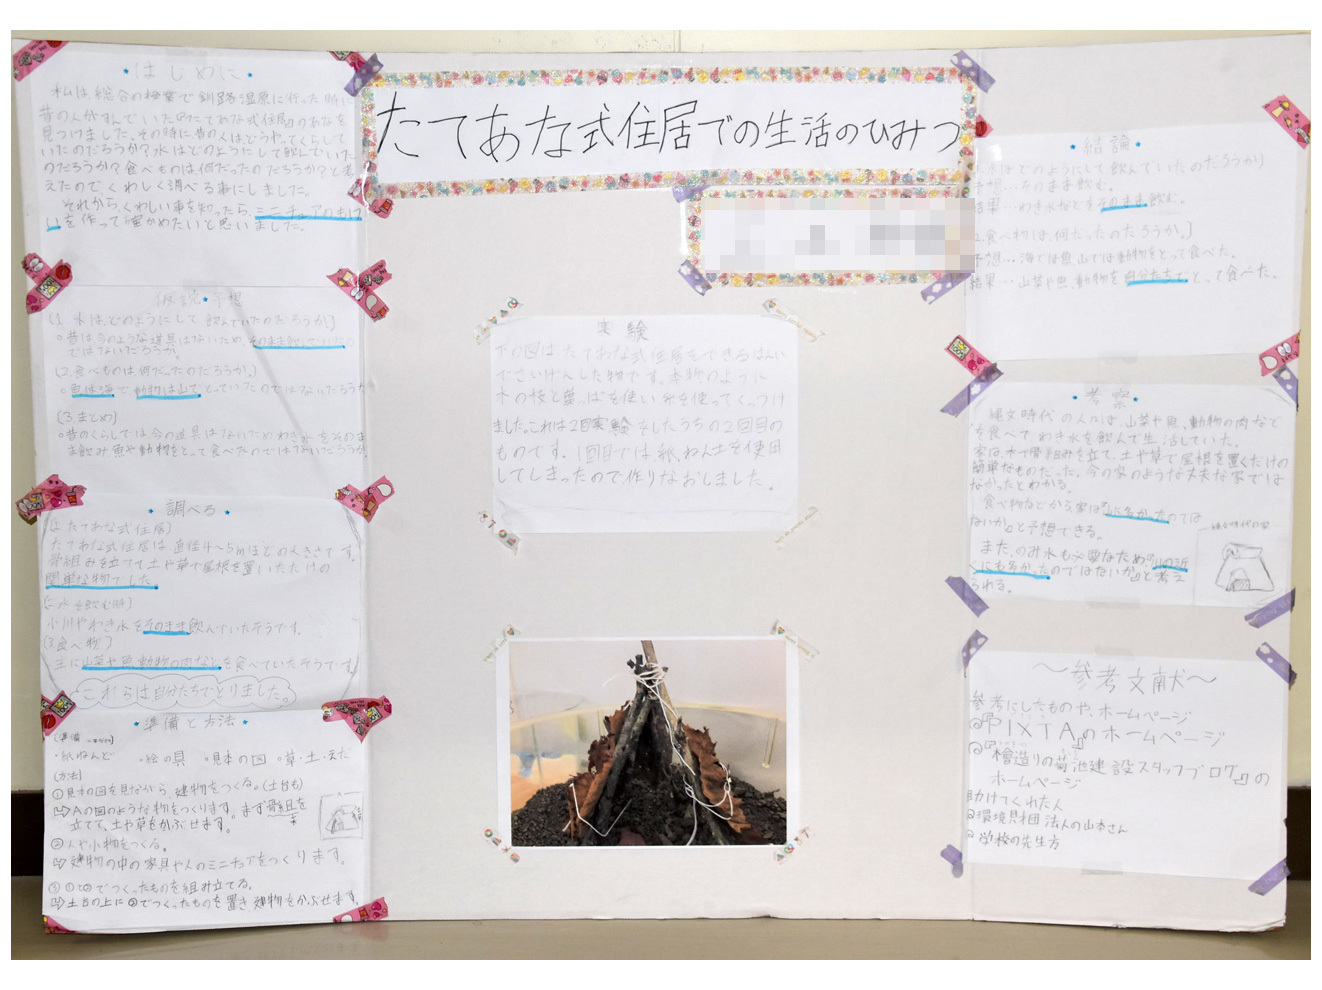 たてあな式住居での生活のひみつ
・はじめに・
私は、総合の授業で釧路湿原に行った時に
昔の人がすんでいた『たてあな式住居』のあなを
見つけました。その時に昔の人はどうやってくらして
いたのだろうか?水はどのようにして飲んでいた
のだろうか?食べものは何だったのだろうか?と考
えたので、くわしく調べる事にしました。
それから、くわしい事を知ったら、ミニチュアのもけ
いを作って確かめたいと思いました。
仮説・予想
(1. 水は、どのようにして飲んでいたのだろうか。)
○昔は今のような道具はないため、そのまま飲んでいたの
ではないだろうか。
(2.食べものは何だったのだろうか。)
○魚は海で動物は山でとっていたのではないだろうか
(3.まとめ)
○昔のくらしでは今の道具はないためわき水をそのま
ま飲み魚や動物をとって食べたのではないだろうか
・調べる・
(1.たてあな式住居)
たてあな式住居は直径4〜5mほどの大きさです。
骨組みを立てて土や草で屋根を置いただけの
簡単な物でした。
(2.水を飲む時)
小川やわき水をそのまま飲んでいたそうです。
(3.食べ物)
主に山菜や魚、動物の肉などを食べていたそうです
これらは自分たちでとりました。
・準備と方法・
(準備)
・紙ねんど ・絵の具 ・見本の図 ・草・土・えだ
(方法)
①見本の図を見ながら、建物をつくる。(土台も)
➪Aの図のような物をつくります。まず骨組を
立てて、土や草をかぶせます。
②人や小物をつくる。
➪建物の中の家具や人のミニチュアをつくります。
③①と②でつくったものを組み立てる。
➪土台の上に②でつくったものを置き、建物をかぶせます。
実験
下の図はたてあな式住居をできるはんい
でさいげんした物です。本物のように
木の枝と葉っぱを使い糸を使ってくっつけ
ました。これは2回実験をしたうちの2回目の
ものです。1回目では紙ねん土を使用
してしまったので作りなおしました。
・結論・
1.水はどのようにして飲んでいたのだろうか)
予想…そのまま飲む。
結果…わき水などをそのまま飲む。
2.食べ物は、何だったのだろうか。)
予想…海では魚、山では動物をとって食べた。
結果…山菜や魚、動物を自分たちでとって食べた。
・考察・
縄文時代の人々は、山菜や魚、動物の肉など
を食べて、わき水を飲んで生活していた。
家は、木で骨組みを立て、土や草で屋根を置くだけの
簡単なものだった。今の家のような丈夫な家では
なかったとわかる。
食べ物などから、家は『山に多かったのでは
ないか』と予想できる。
また、のみ水も必要なため『川の近
くにも多かったのではないか』と考え
られる。
〜参考文献〜
参考にしたものや、ホームページ
◎『PIXTA』のホームページ
◎『檜造りの菊池建設スタッフブログ』の
ホームページ
助けてくれた人
◎環境財団法人の山本さん
◎学校の先生方